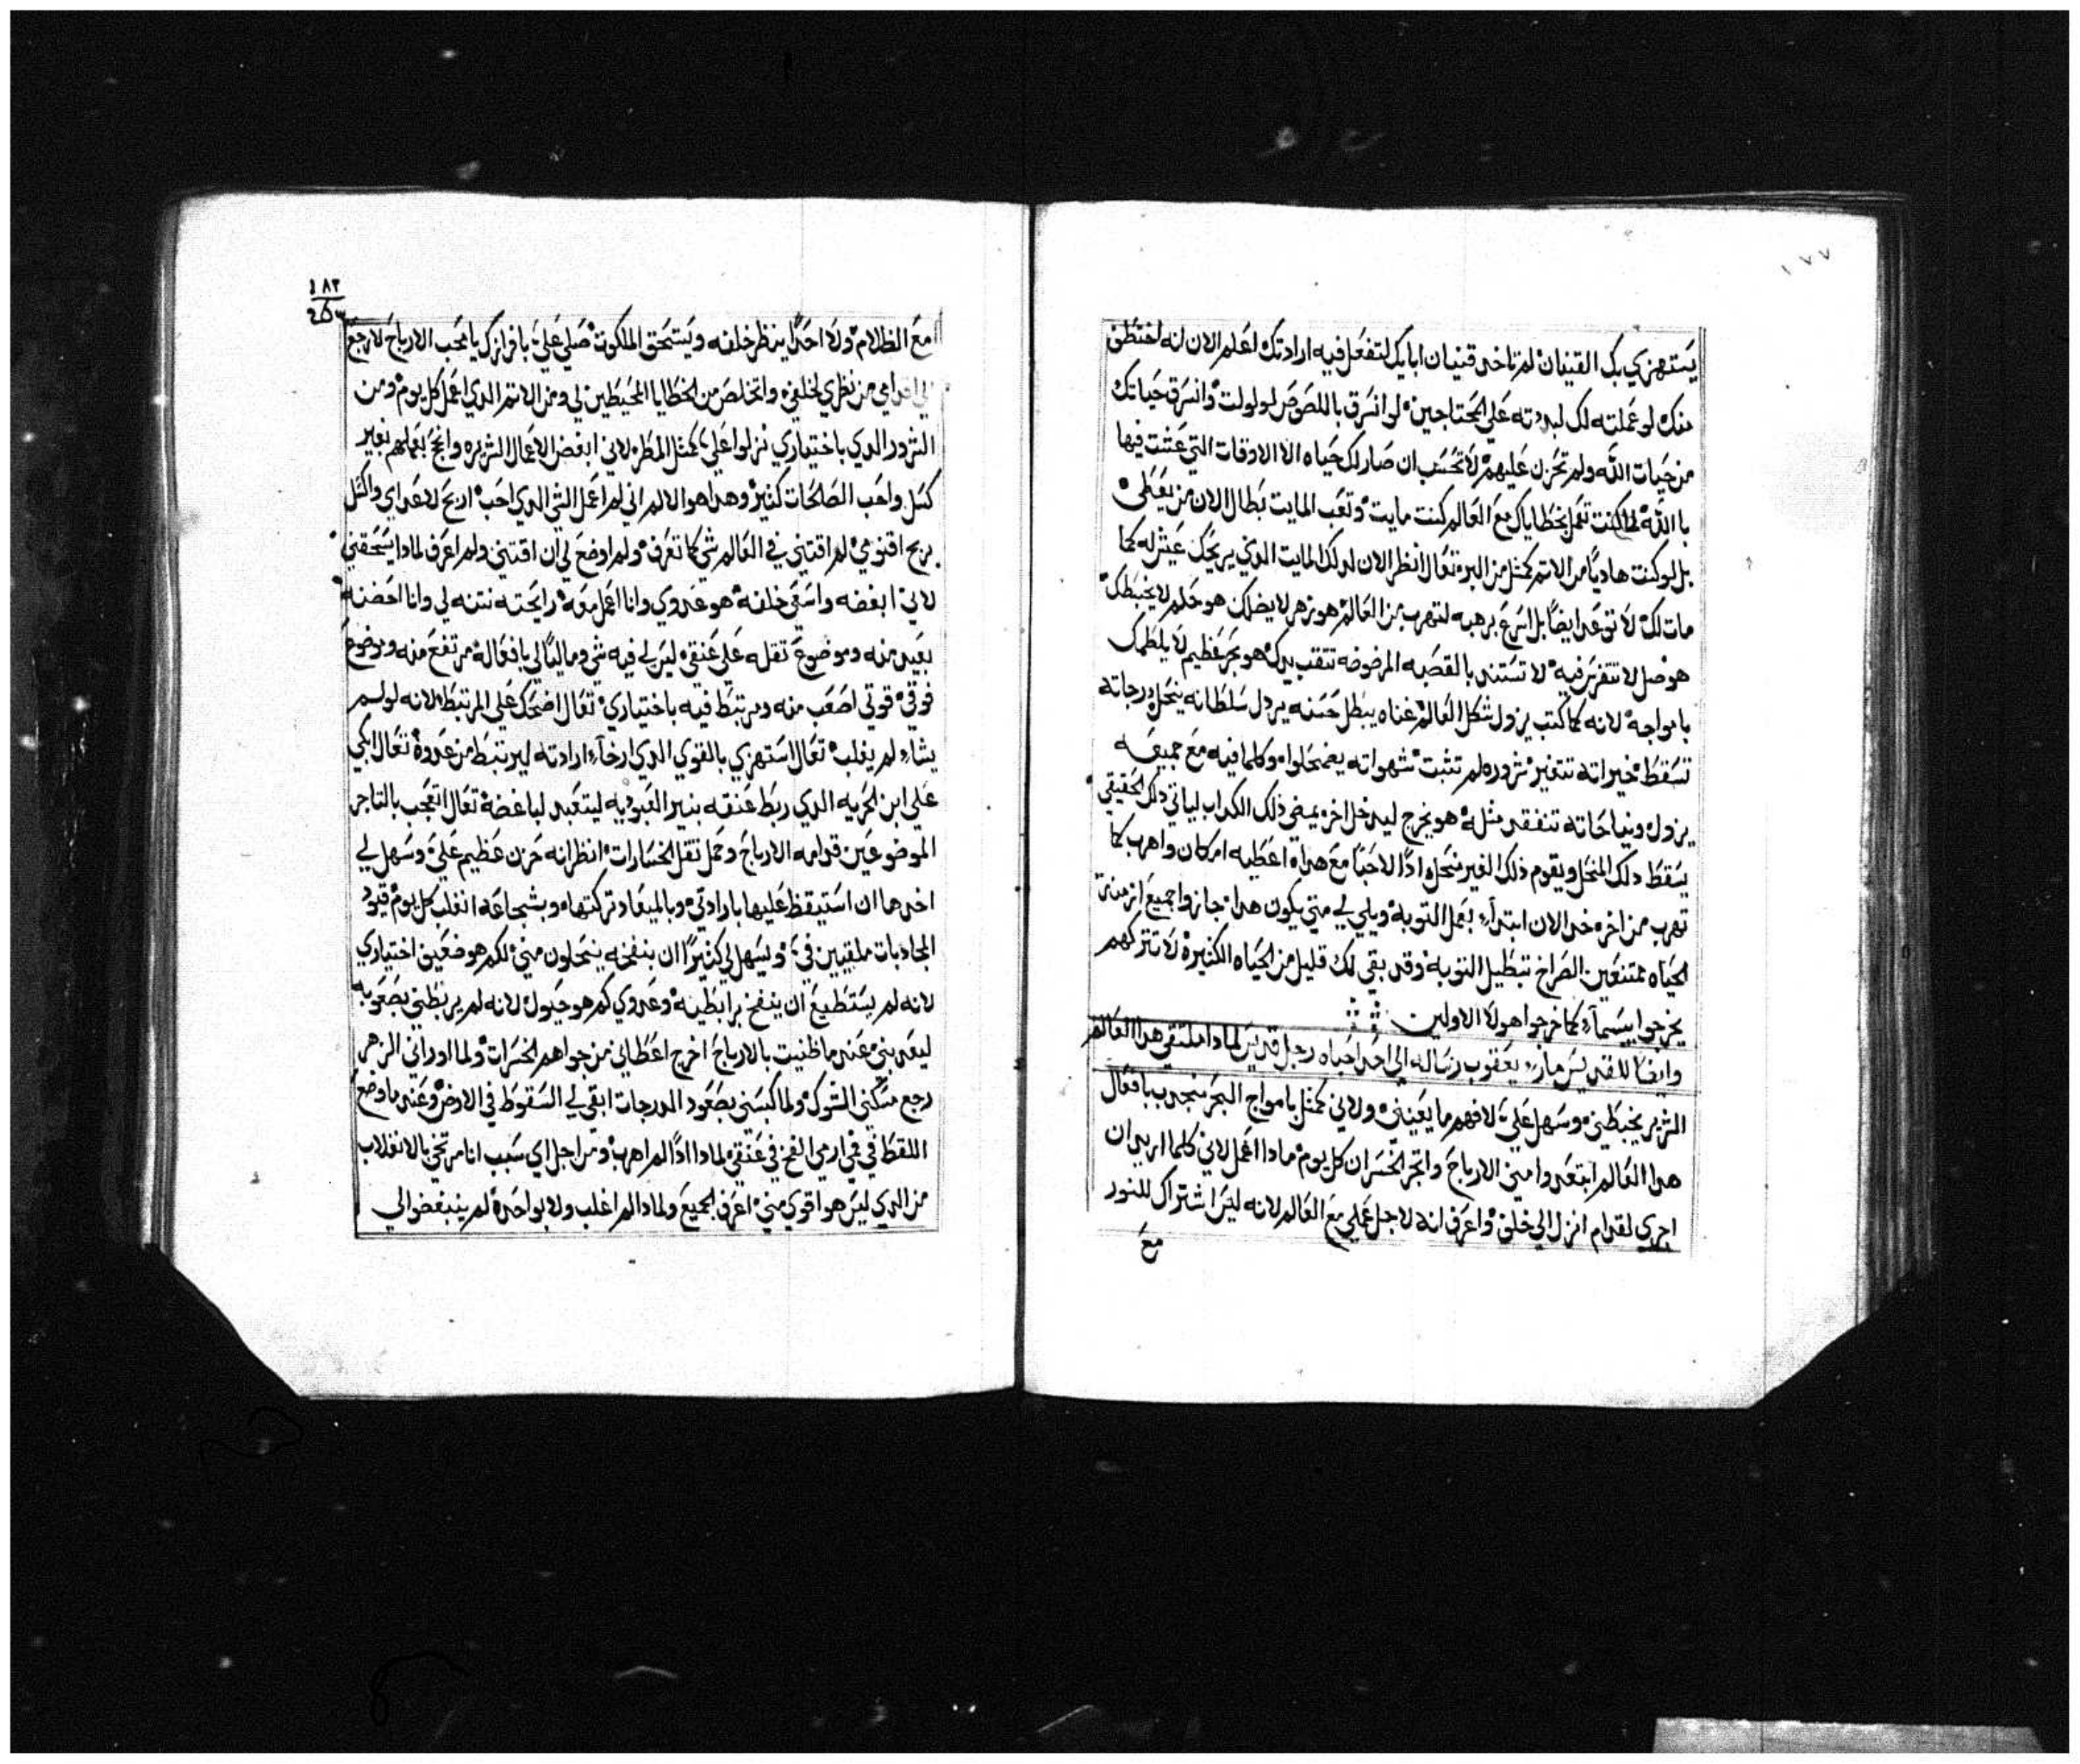 ١٧٧
يستهزي بك القنيان لم تاخد قنيان ابايك لتفعل فيه ارادتك اعلم الان انه اختطف
منك لو عملته لك لبددته علي المحتاجين لو انسرق باللصوص لولولت وانسرق حياتك
من حيات الله ولم تحزن عليهم لا تحسب ان صار لك حياه الا الاوقات التي عشت فيها
بالله لما كنت تعمل بخطاياك مع العالم كنت مايت وتعب المايت بطال الان من يعطي
بل لو كنت هاديا من الاتم كمثل من البر تعال انظر الان لدلك المايت الدي يريحك عيش له كما
مات لك لا توعد ايضا بل اسرع برهبه لتهرب من العالم هو زهر لا يضلك هو حلم لا يخبطك
هو ضل لا تتفرس فيه لا تستند بالقصبه المرضوضه تتقب يدك هو بحر عظيم لا يلطمك
بامواجه لانه كما كتب يزول شكل العالم غناه يبطل حسنه يردل سلطانه ينحل درجاته
تسقط خيراته تتغير شروره لم تتبت شهواته يضمحلوا وكلما فيه مع جميعه
يزول ونياحاته تنفقد مثله هو يخرج ليدخل اخر يمضي ذلك الكداب لياتي ذلك الحقيقي
يسقط دلك المنحل ويقوم ذلك الغير منحل ادا لاحبنا مع هدا اعطيه امكان واهرب كما
تهرب من اخره خد الان ابتداء بعمل التوبه ويلي لي متي يكون هدا جازوا جميع ازمنة
الحياه ممتنعين الصراخ تبطيل التوبه وقد بقي لك قليل من الحياه الكتيره لا تتركهم
يخرجوا بيسما كما خرجوا هولا الاولين
وايضا للقديس مار يعقوب رساله الي احد احباه رجل قديس لمادا ملتقي هدا العالم
الشرير يخبطني وسهل علي لافهم ما يعينني ولاني كمثل بامواج البحر منجدب بافعال
هدا العالم ابتعدوا مني الارباح واتجر الخسران كل يوم مادا اعمل لاني كلما اريد ان
اجري لقدام انزل الي خلف واعرف انه لاجل عملي مع العالم لانه ليس اشتراك للنور
مع
١٨٢
مع الظلام ولا احدا ينظر خلفه ويستحق الملكوت صلي علي بافرازك يا محب الارباح لارجع
الي قدامي من نظري لخلفي واتخلص من الخطايا المحيطين لي ومن الاتم الدي اعمل كل يوم ومن
الشرور الدي باختياري نزلوا علي كمثل المطر لاني ابغض الاعمال الشريره وانجح بعملهم بغير
كسل واحب الصالحات كتير وهدا هو الالم اني لم اعمل الشي الدي احب اربح لاعداي والكل
يربح اقنومي لم اقتني في العالم شي كما تعرف ولم اوضع لي ان اقتني ولم اعرف لمادا يسحقني
لاني ابغضه واسعي خلفه هو عدوي وانا اعمل معه رايحته نتنه لي وانا احضنه
بعيد منه وموضوع تقله علي عنقي ليس لي فيه شي وماليا لي بافعاله مرتفع منه وموضوع
فوقي قوتي اصعب منه ومرتبط فيه باختياري تعال اضحك علي المرتبط لانه لو لم
يشاء لم يغلب تعال استهزي بالقوي الدي ارخا ارادته ليرتبط من عدوه تعال ابكي
علي ابن الحريه الدي ربط عنقه بنير العبوديه ليتعبد لباغضه تعال اتعجب بالتاجر
الموضوعين قدامه الارباح وحمل تقل الخسارات انظر انه حزن عظيم علي وسهل لي
اخدها ان استيقظ عليها بارادتي وبالميعاد تركتها وبشجاعه انغلب كل يوم قيود
المجادبات ملقيين في وليسهل لي كتيرا ان بنفخه ينحلون مني لكم هو ضعيف اختياري
لانه لم يستطيع ان ينفخ برابطيه وعدوي كم هو حيول لانه لم يربطني بصعوبه
ليعدبني عندما ظنيت بالارباح اخرج اعطاني من جواهم الخسرات ولما اوراني الزهر
رجع مسكني الشوك ولما كبسني بصعود الدرجات ابقي لي السقوط في الارض وعندما وضع
اللقط في فمي ارمي الفخ في عنقي لمادا ادا لم اهرب ومن اجل اي سبب انا مرتخي بالانغلاب
من الدي ليس هو اقوي مني اعرف الجميع ولمادا لم اغلب ولا بواحده لم ينبغضوا لي